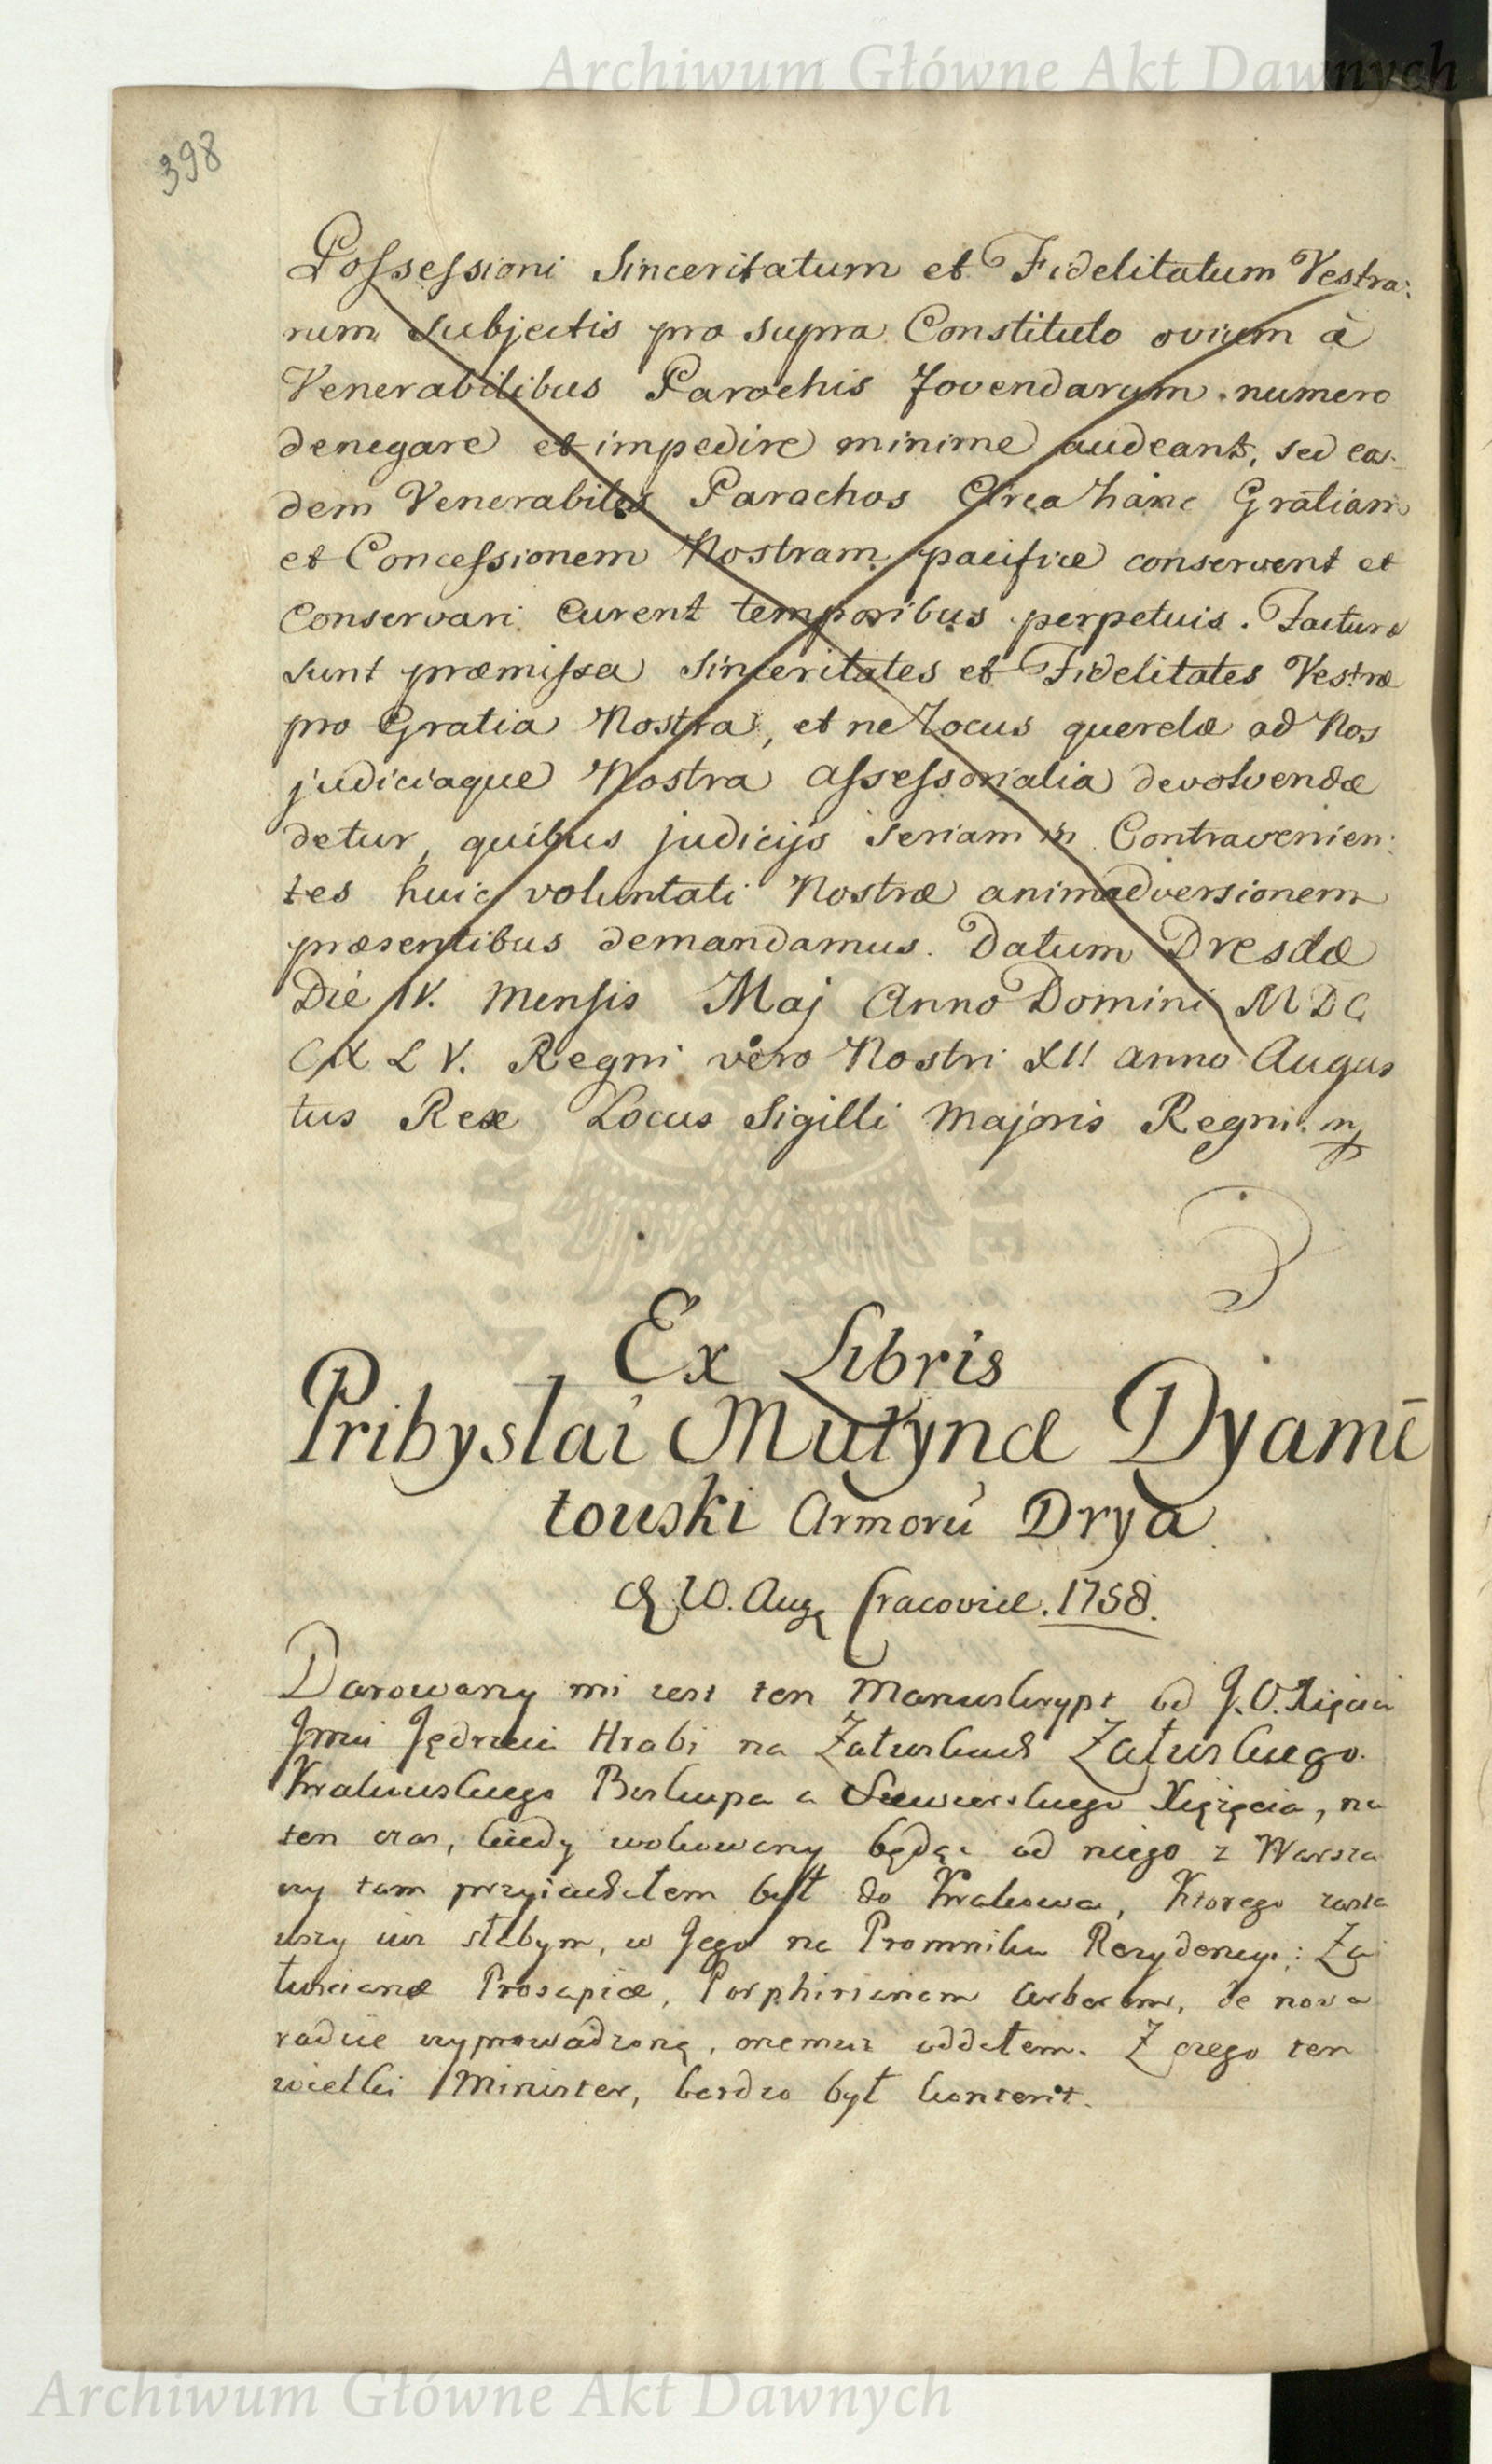 Archiwum Główne Akt Dawnych
398
Possessioni Sinceritatum et Fidelitatum Vestra:
rum subjectis pro supra Constituto ovium à
Venerabilibus Parochis fovendarum numero
denegare et impedire minime audeant, sed eos-
dem Venerabiles Parochos Circa hanc Gratiam
et Concessionem Nostram pacifice conservent et
Conservari Curent temporibus perpetuis. Facturæ
sunt præmissa Sinceritates et Fidelitates Vestræ
pro Gratia Nostra, et ne Locus querelæ ad Nos
judiciaque Nostra assessorialia devolvendæ
detur, quibus judicijs seriam in Contravenien:
tes huic voluntati Nostræ animadversionem
præsentibus demandamus. Datum Dresdæ
Die IV. Mensis Maj Anno Domini MDC
CXLV. Regni vero Nostri XII anno Augus
tus Rex Locus Sigilli Majoris Regni.
Ex Libris
Pribyslai Mutynæ Dyamē
touski Armorū Drya
20. Aug Cracoviæ. 1758.
Darowany mi iest ten Manuskrypt od J.O. Xięcia
Jmci Jędrzeia Hrabi na Załuskach Załuskiego.
Krakowskiego Biskupa a Siewierskiego Xiążęcia, na
ten czas, kiedy wokowany będąc od niego z Warsza
wy tam przyiachałem był do Krakowa, Ktorego zasta
wszy iuz słabym, w Jego na Promniku Rezydencyi: Za
łuscianæ Prosapiæ, Porphirianam Arborem, de nova
radice wyprowadzoną, onemuz oddałem. Z czego ten
wielki Minister, bardzo był kontent.
Archiwum Główne Akt Dawnych